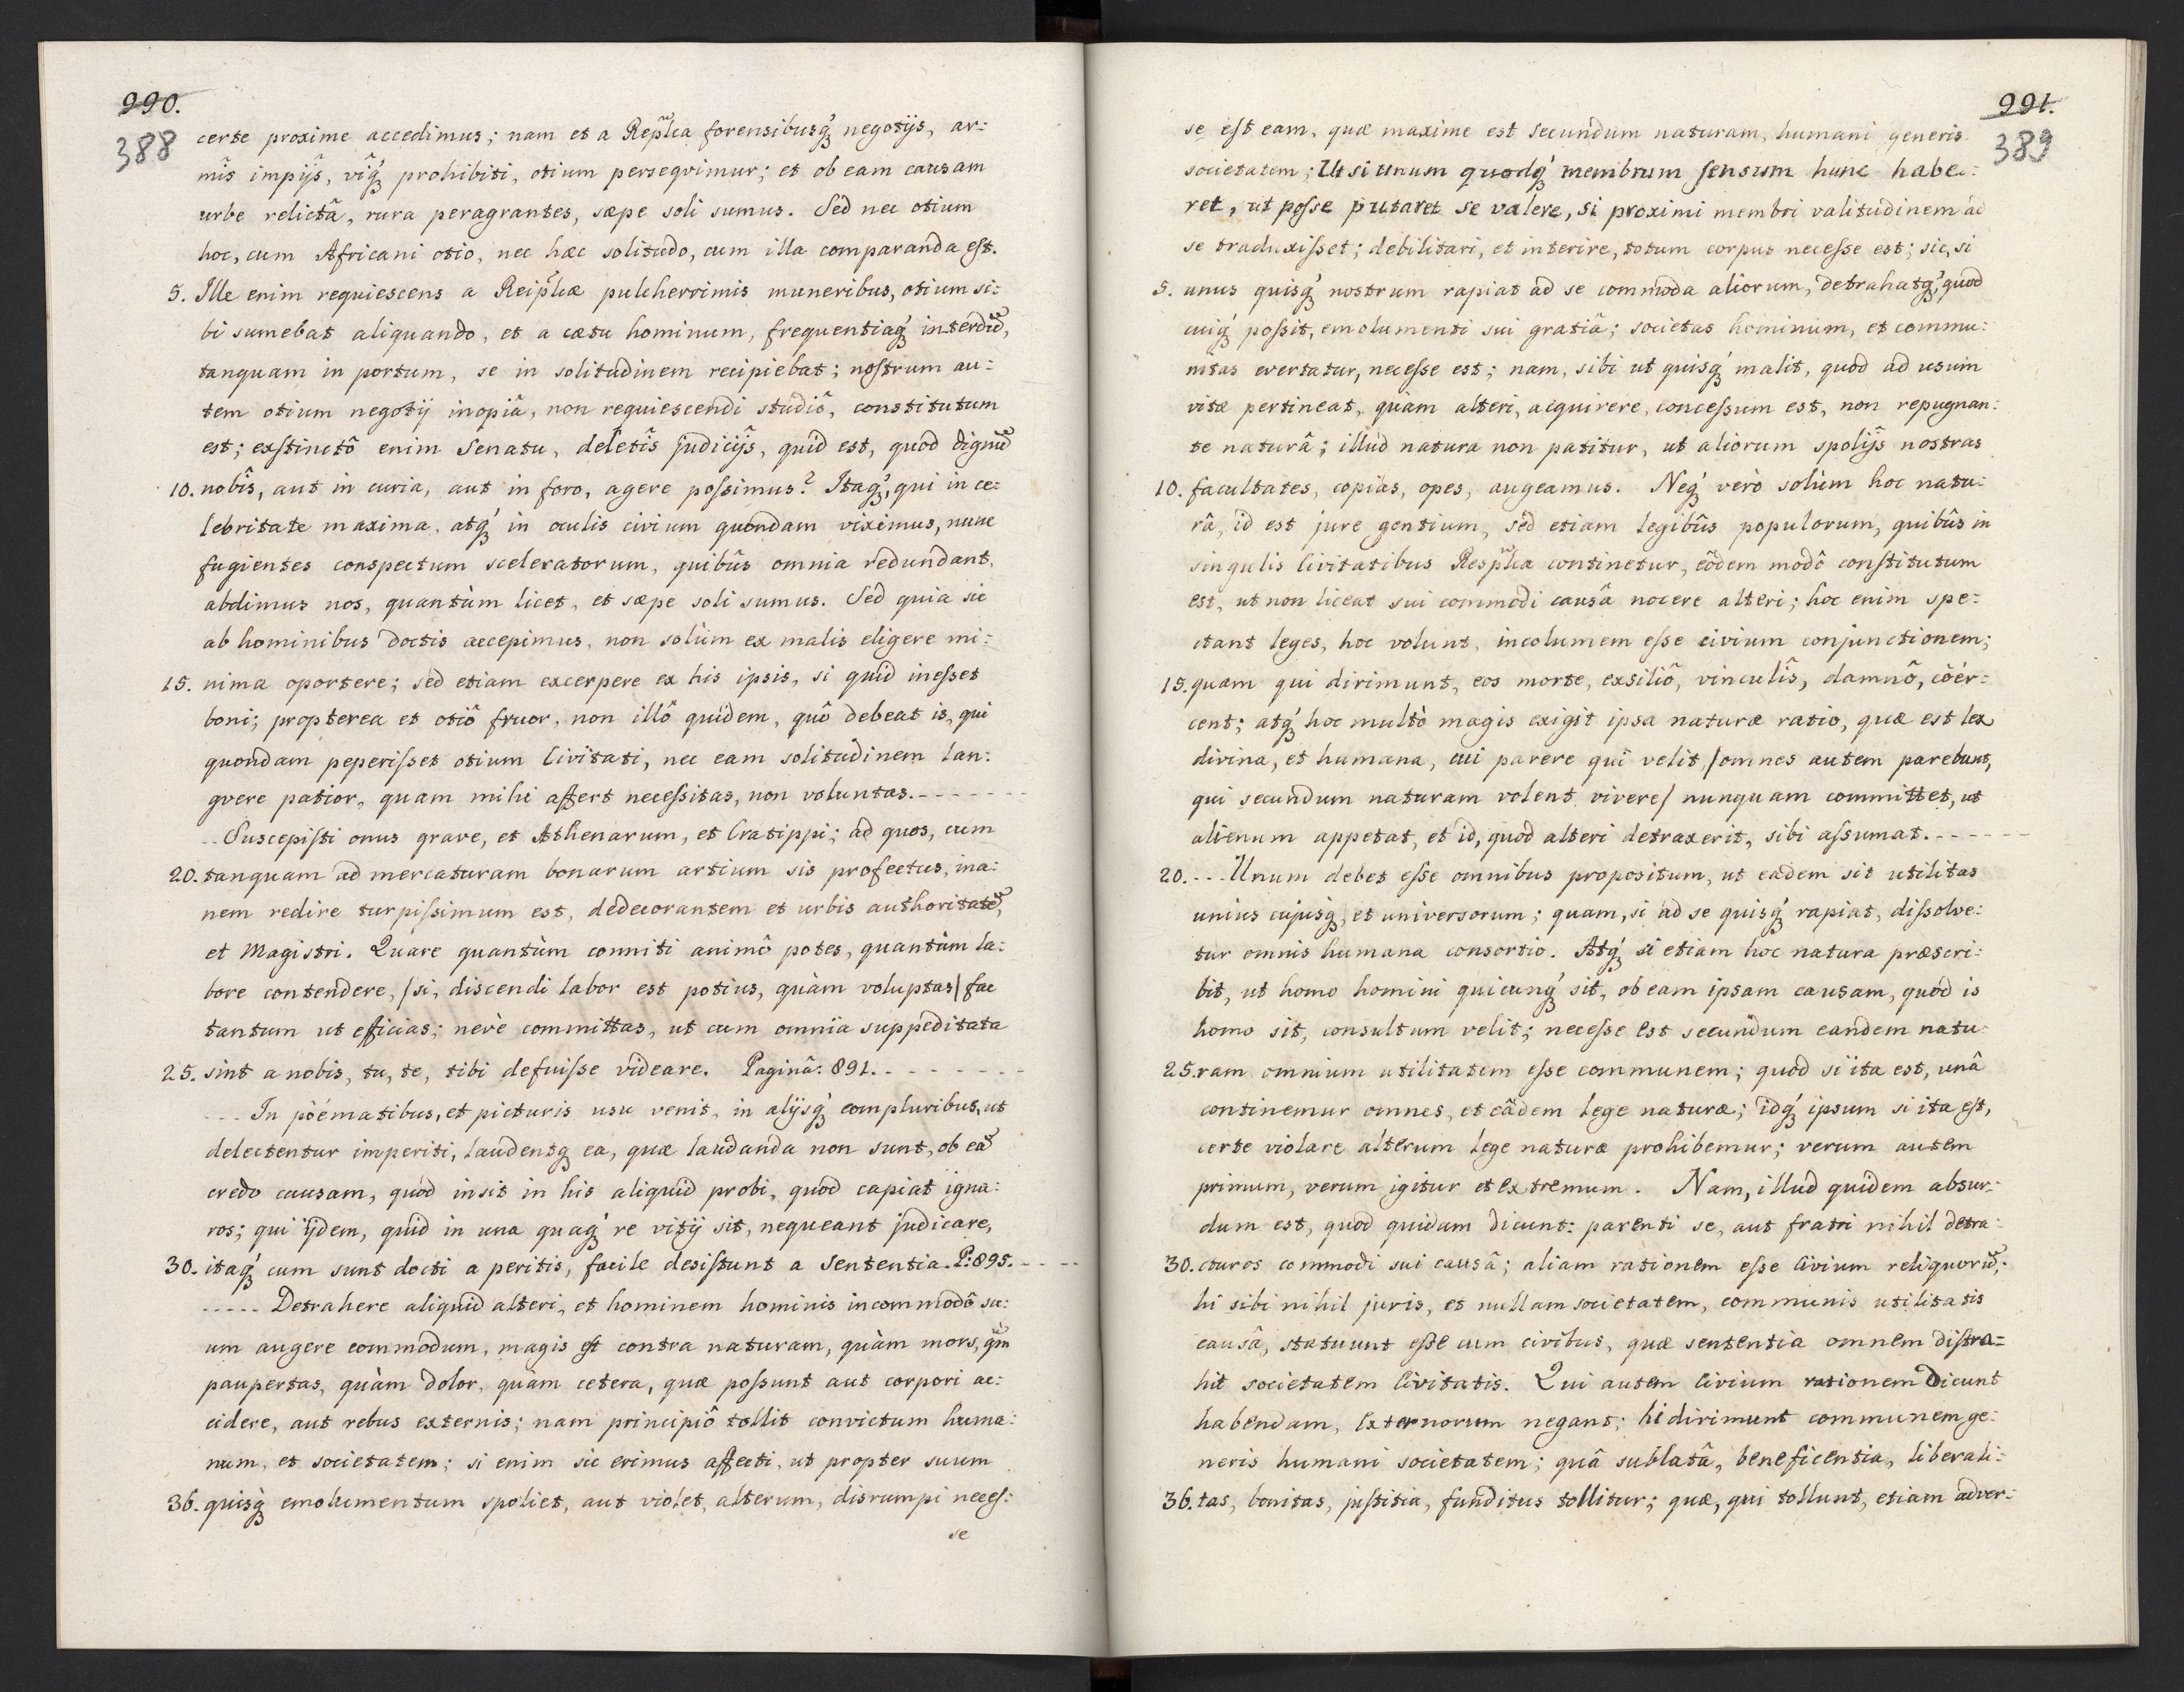 990.
388
certe proxime accedimus; nam et a Repl̃ca forensibusq́ꝫ negotijs, ar:
mîs impijŝ, vîq́ꝫ prohibiti, otium perseqvimur; et ob eam causam
urbe relictâ, rura peragrantes, sæpe soli sumus. Sed nec otium
hoc, cum Africani otio, nec hæc solitudo, cum illa comparanda eſt.
5. Ille enim requiescens a Reipl̃cæ pulcherrimis muneribus, otium si:
bi sumebat aliquando, et a cœtu hominum, frequentiaq́ꝫ interdũ,
tanquam in portum, se in solitudinem recipiebat; noſtrum au:
tem otium negotij inopiâ, non requiescendi studiô, constitutum
est; exſtinctô enim Senatu, deletîs judicijŝ, quid est, quod dignũ
10. nobîs, aut in curia, aut in foro, agere poſsimus? Itaq́ꝫ, qui in ce:
lebritate maxima, atq́ꝫ in oculis civium quondam viximus, nunc
fugientes conspectum sceleratorum, quibûs omnia redundant,
abdimus nos, quantùm licet, et sæpe soli sumus. Sed quia sic
ab hominibus doctis accepimus, non solùm ex malis eligere mi:
15. nima oportere; sed etiam excerpere ex his ipsis, si quid ineſset
boni; propterea et otiô fruor, non illô quidem, quô debeat is, qui
quondam peperiſset otium Civitati, nec eam solitudinem lan:
gvere patior, quam mihi affert neceſsitas, non voluntas. - - - - - - -
- - Suscepiſti onus grave, et Athenarum, et Cratippi; ad quos, cum
20. tanquam ad mercaturam bonarum artium sis profectus, ina:
nem redire turpiſsimum est, dedecorantem et urbis authoritatẽ,
et Magistri. Quare quantùm conniti animô potes, quantùm la:
bore contendere, /si, discendi labor est potius, quàm voluptas/ fac
tantum ut efficias; nevè committas, ut cum omnia suppeditata
25. sint a nobis, tu, te, tibi defuiſse videare. Paginâ: 891. - - - - - - -
- - - In pöématibus, et picturis usu venit, in alijsq́ꝫ compluribus, ut
delectentur imperiti, laudentqꝫ ea, quæ laudanda non sunt, ob eã
credo causam, quòd insit in his aliquid probi, quod capiat igna:
ros; qui ijdem, quid in una quaq́ꝫ re vitij sit, nequeant judicare,
30. itaq́ꝫ cum sunt docti a peritis, facile desiſtunt a sententia. P: 895. - - - -
- - - - - Detrahere aliquid alteri, et hominem hominis incommodô su:
um augere commodum, magis eſt contra naturam, quàm mors, q̃m
paupertas, quàm dolor, quàm cetera, quæ poſsunt aut corpori ac:
cidere, aut rebus externis; nam principiô tollit convictum huma:
num, et societatem; si enim sic erimus affecti, ut propter suum
36. quisq̀ꝫ emolumentum spoliet, aut violet, alterum, disrumpi neceſ:
se
991.
389
se eſt eam, quæ maxime est secundum naturam, humani generis
societatem; Ut si unum quodq́ꝫ membrum ſensum hunc habe:
ret, ut poſse putaret se valere, si proximi membri valitudinem ad
se traduxiſset; debilitari, et interire, totum corpus neceſse est; sic, si
5. unus quisq́ꝫ nostrum rapiat ad se commoda aliorum, detrahatq́ꝫ, quod
cuiq́ꝫ poſsit, emolumenti sui gratiâ; societas hominum, et commu:
nitas evertatur, neceſse est; nam, sibi ut quisq́ꝫ malit, quod ad usum
vitæ pertineat, quàm alteri, acquirere, conceſsum est, non repugnan:
te naturâ; illud natura non patitur, ut aliorum spolijŝ nostras
10. facultates, copias, opes, augeamus. Neq́ꝫ verò solùm hoc natu:
râ, id est jure gentium, sed etiam legibûs populorum, quibûs in
singulis Civitatibus Respl̃ca continetur, eôdem modô conſtitutum
est, ut non liceat sui commodi causâ nocere alteri; hoc enim spe:
ctant leges, hoc volunt, incolumem eſse civium conjunctionem;
15. quam qui dirimunt, eos morte, exsiliô, vinculîs, damnô, cöér:
cent; atq́ꝫ hoc multò magis exigit ipsa naturæ ratio, quæ est lex
divina, et humana, cui parere qui velit, /omnes autem parebunt,
qui secundum naturam volent vivere/ nunquam committet, ut
alienum appetat, et id, quod alteri detraxerit, sibi aſsumat. - - - - - -
20. - - - Unum debet eſse omnibus propositum, ut eadem sit utilitas
unius cujusq́ꝫ, et universorum; quam, si ad se quisq́ꝫ rapiat, diſsolve:
tur omnis humana consortio. Atq́ꝫ si etiam hoc natura præscri:
bit, ut homo homini quicunq́ꝫ sit, ob eam ipsam causam, quòd is
homo sit, consultum velit; neceſse est secundum eandem natu:
25. ram omnium utilitatem eſse communem; quòd si ita est, unâ
continemur omnes, et eâdem lege naturæ; idq́ꝫ ipsum si ita eſt,
certe violare alterum lege naturæ prohibemur; verum autem
primum, verum igitur et extremum. Nam, illud quidem absur:
dum est, quod quidam dicunt: parenti se, aut fratri nihil detra:
30. cturos commodi sui causâ; aliam rationem eſse Civium reliquorũ;
hi sibi nihil juris, et nullam societatem, communis utilitatis
causâ, statuunt eſse cum civibus, quæ sententia omnem diſtra:
hit societatem Civitatis. Qui autem Civium rationem dicunt
habendam, Externorum negant; hi dirimunt communem ge:
neris humani societatem; quâ sublatâ, beneficentia, liberali:
36. tas, bonitas, juſtitia, funditus tollitur; quæ, qui tollunt, etiam adver: